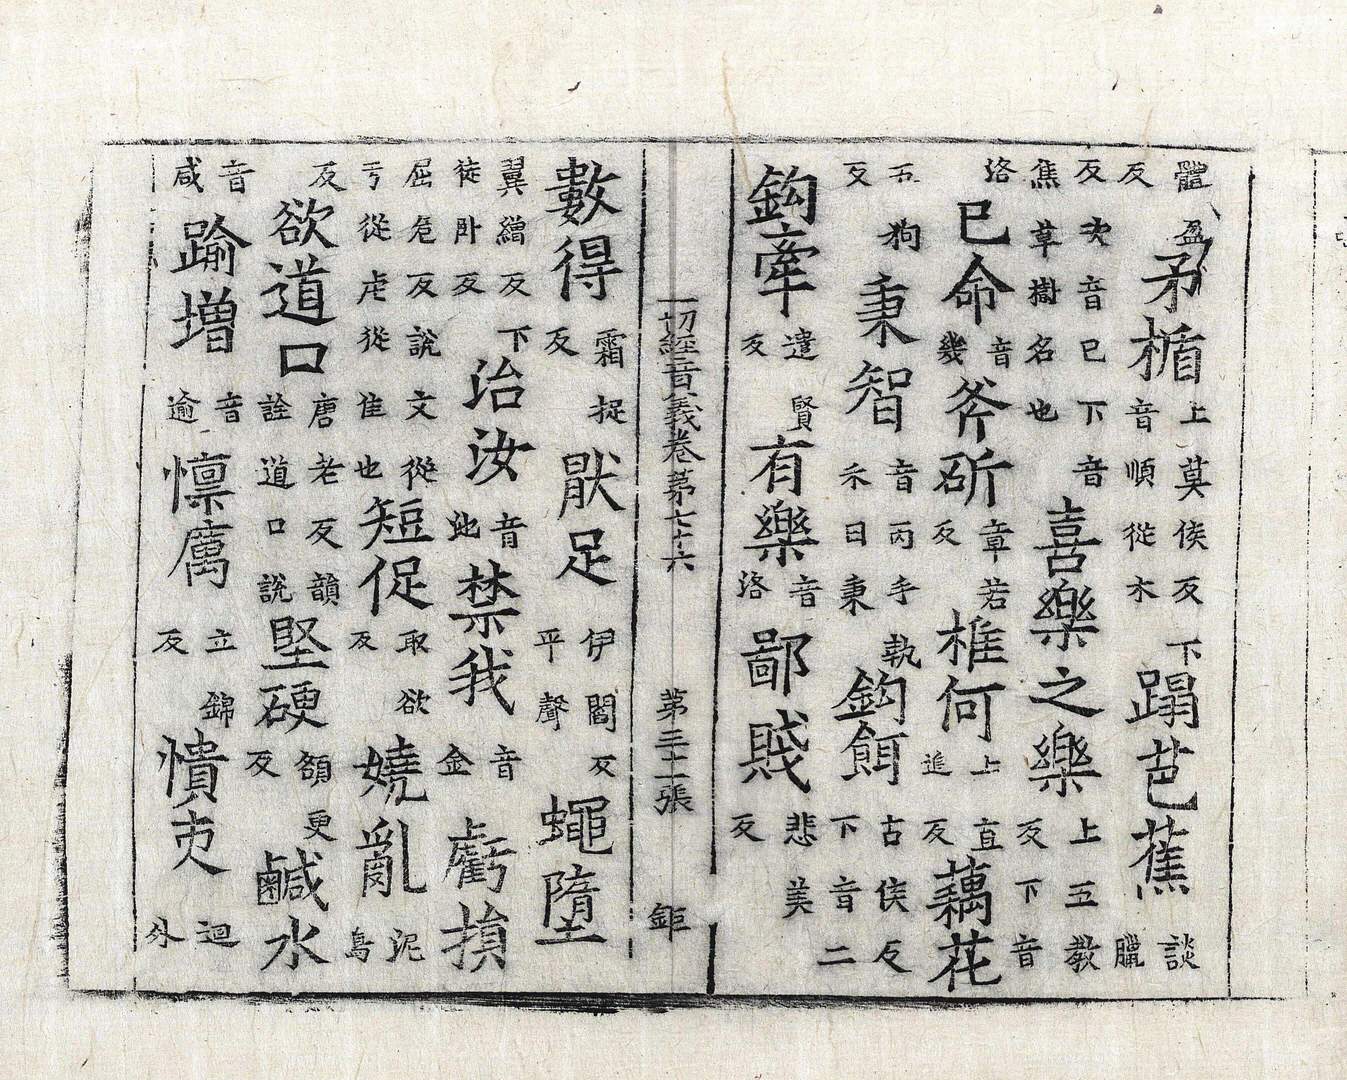 體盈反矛楯上莫侯反下音順從木蹋芭蕉談臘
反次音巴下音焦草樹名也喜樂之樂上五教反下音
洛已命音幾斧斫章若反椎何上直追反藕花
五狗反秉智音丙手執禾曰秉鈎餌古侯反下音二
鈎牽遣賢反有樂音洛鄙賤悲美反
一切經音義卷第七十六 第三十二張 鉅
數得霜捉反猒足伊閻反平聲蠅墮
翼繒反下徒卧反治汝音池禁我音金虧損
屈危反說文從亏從虍從隹也短促取欲反嬈亂泥鳥
反欲道口唐老反韻詮道口說堅硬額更反鹹水
音咸踰增音逾懍厲立錦反憒吏迴外